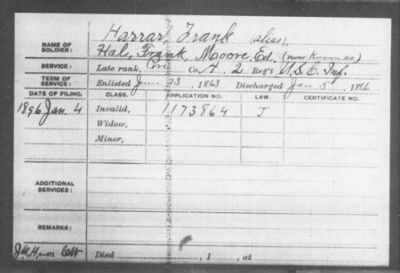 Harrar, Frank alias,
NAME OF SOLDIER: Hale, Frank, Moore, Ed. (now known as)
SERVICE: Late rank, Co. A, 2 Reg't U.S.C. Inf.
TERM OF SERVICE: Enlisted 23, 1863 Discharged Jan. 5, 1866
DATE OF FILING. CLASS. APPLICATION NO. LAW. CERTIFICATE NO.
1896 Jan. 4 Invalid, 1173864 J
Widow,
Minor,
ADDITIONAL SERVICES:
REMARKS:
Died , 1 , at